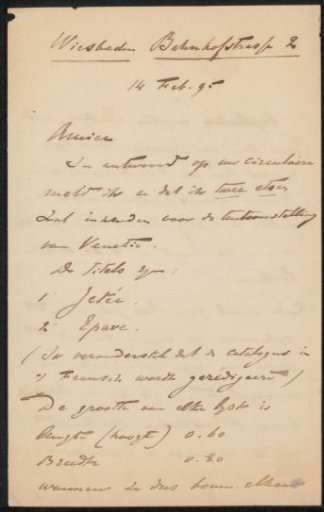 Wiesbaden Bahnhofstrasse 2
14 Feb. 95
Amice
In antwoord op uw circulaire
meld ik u dat ik twee etsen
zal inzenden voor de tentoonstelling
van Venetie.
De titels zijn:
1 Jetée.
2 Epave.
(Ik veronderstel dat de catalogus in
't Fransch wordt gerédigeerd)
De grootte van elke is
(hoogt) 0.60
Breedte 0.80
wanneer ze dus boven elkaar